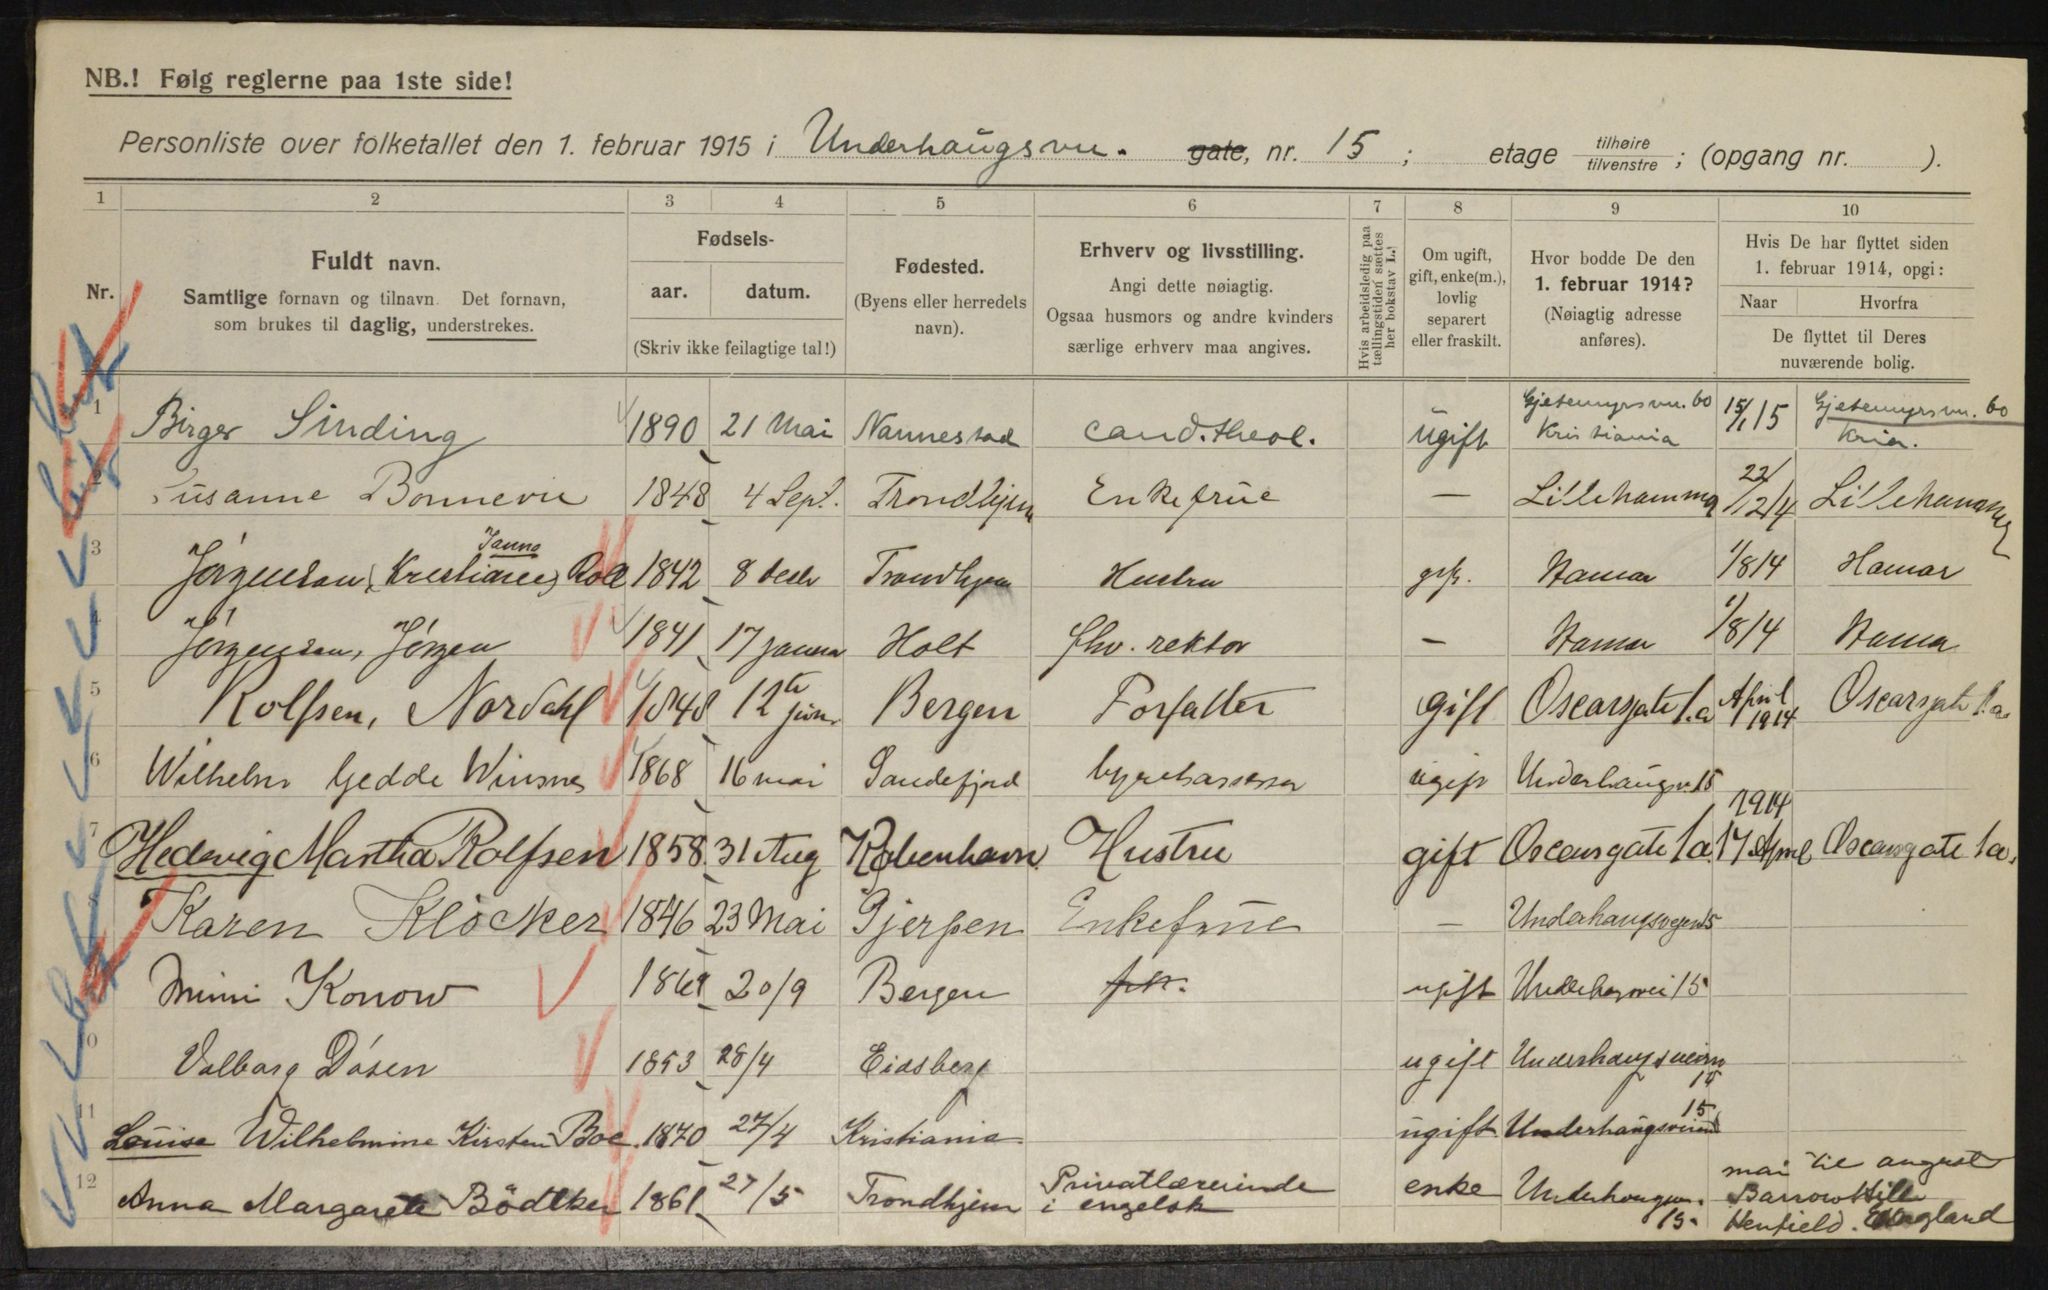 NB.! Følg reglerne paa 1ste side!
Personliste over folketallet den 1. februar 1915 i Underhaugsvn. gate, nr. 15; etage tilhøire tilvenstre; (opgang nr. ).
1 2 3 4 5 6 7 8 9 10
Nr.
Fuldt navn.
Samtlige fornavn og tilnavn. Det fornavn,
som brukes til daglig, understrekes.
Fødsels-
aar. datum.
(Skriv ikke feilagtige tal!)
Fødested.
(Byens eller herredets
navn).
Erhverv og livsstilling.
Angi dette nøiagtig.
Ogsaa husmors og andre kvinders
særlige erhverv maa angives.
Hvis arbeidsledig paa
tællingstiden sættes
her bokstav L.!
Om ugift,
gift, enke(m.),
lovlig
separert
eller fraskilt.
Hvor bodde De den
1. februar 1914?
(Nøiagtig adresse
anføres).
Hvis De har flyttet siden
1. februar 1914, opgi:
Naar Hvorfra
De flyttet til Deres
nuværende bolig.
1 Birger Sinding 1890 21 Mai Nannestad cand. theol. ugift Gjetemyrsvn. 60 Kristiania 15/1 15 Gjetemyrsvn. 60 Kria.
2 Susanne Bonnevie 1848 4 Sept. Trondhjem Enkefrue — Lillehammer 22/2 14 Lillehammer
3 Jørgensen, (Kristiane) Janna Roll 1842 8 decbr Trondhjem Hustru gift. Hamar 1/8 14 Hamar
4 Jørgensen, Jørgen 1841 17 januar Holt fhv. rektor — Hamar 1/8 14 Hamar
5 Rolfsen, Nordahl 1848 12te juni Bergen Forfatter gift Oscarsgate 1.a April 1914 Oscarsgate 1.a.
6 Wilhelm Gedde Winsnes 1868 16 mai Sandefjord byretsassessor ugift Underhaugsv. 15
7 Hedevig Martha Rolfsen 1858 31 Aug København Hustru gift Oscarsgate 1a. 1914 17 April Oscarsgate 1a.
8 Karen Kløcker 1846 23 Mai Gjerpen Enkefrue — Underhaugsvegen 15
Mimi Konow 1869 20/9 Bergen frk. ugift Underhaugsvei 15
0 Valborg Døsen 1853 28/4 Eidsberg ugift Underhaugsveien 15
11 Louise Wilhelmine Kirsten Boe. 1870 27/4 Kristiania ugift Underhaugsveien 15
12 Anna Margarete Bødtker 1861 27/5 Trondhjem Privatlærerinde i engelsk enke Underhaugsvn. 15. mai til august Barrow Hill Henfield. England